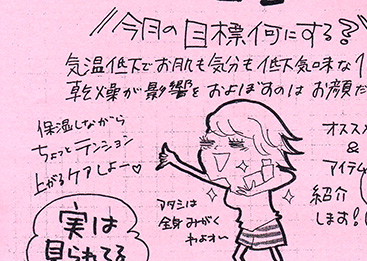 今月の目標何にする?
気温低下でお肌も気分も低下気味な
乾燥が影響をおよぼすのはお顔だ
保湿しながら
ちょっとテンション
上がるケアしよー♡
アタシは
全身みがく
わよオ〜
オススメ
&
アイテム
紹介
します!
実は
見られてる